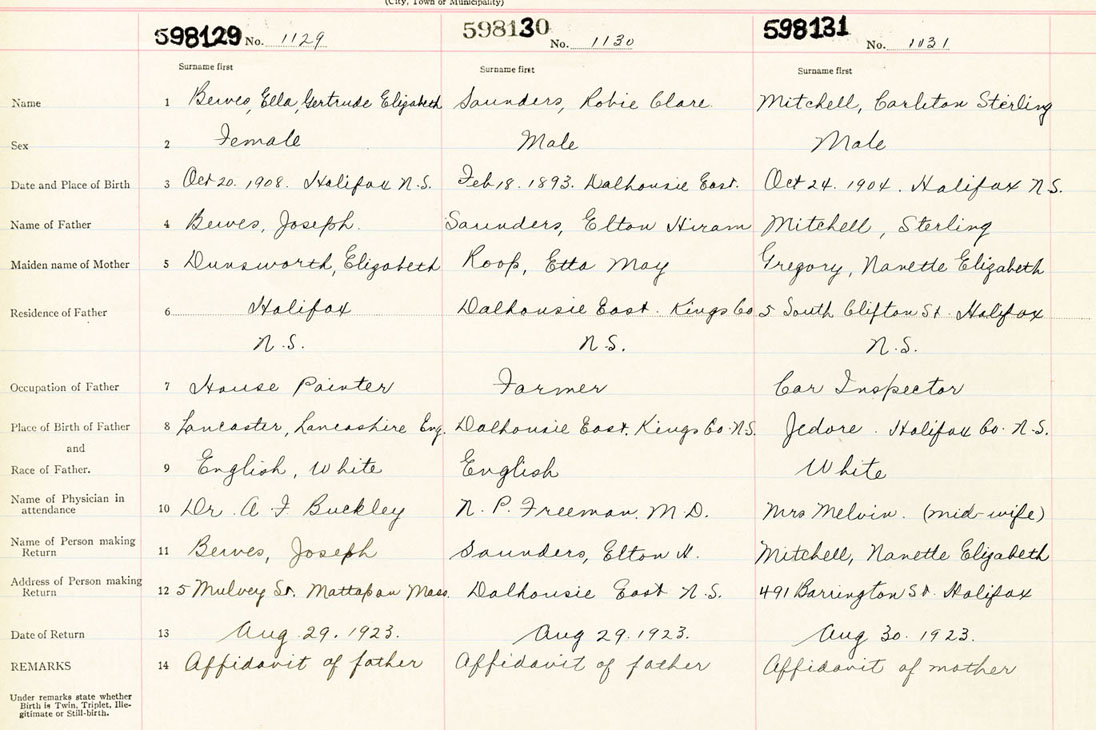 (City, Town or Municipality)
598129 No. 1129 598130 No. 1130 598131 No. 1131
Surname first Surname first Surname first
Name 1 Berves, Ella, Gertrude Elizabeth Saunders, Robie Clare. Mitchell, Carleton Sterling
Sex 2 Female Male Male
Date and Place of Birth 3 Oct 20. 1908. Halifax N.S. Feb 18. 1893. Dalhousie East. Oct 24. 1904. Halifax N.S.
Name of Father 4 Berves, Joseph. Saunders, Elton Hiram Mitchell, Sterling
Maiden name of Mother 5 Dunsworth, Elizabeth Roop, Etta May Gregory, Nanette Elizabeth
Residence of Father 6 Halifax Dalhousie East. Kings Co 5 South Clifton St. Halifax
N.S. N.S. N.S.
Occupation of Father 7 House Painter Farmer Car Inspector
Place of Birth of Father 8 Lancaster, Lancashire Eng. Dalhousie East, Kings Co. N.S. Jedore. Halifax Co. N.S.
and
Race of Father. 9 English, White English White
Name of Physician in attendance 10 Dr. A F Buckley N. P. Freeman. M D. Mrs Melvin. (mid-wife)
Name of Person making Return 11 Berves, Joseph Saunders, Elton H. Mitchell, Nanette Elizabeth
Address of Person making Return 12 5 Mulvey St. Mattapan Mass. Dalhousie East N.S. 491 Barrington St. Halifax
Date of Return 13 Aug 29. 1923. Aug 29. 1923. Aug 30. 1923.
REMARKS 14 Affidavit of father Affidavit of father Affidavit of mother
Under remarks state whether
Birth is Twin, Triplet, Ille-
gitimate or Still-birth.